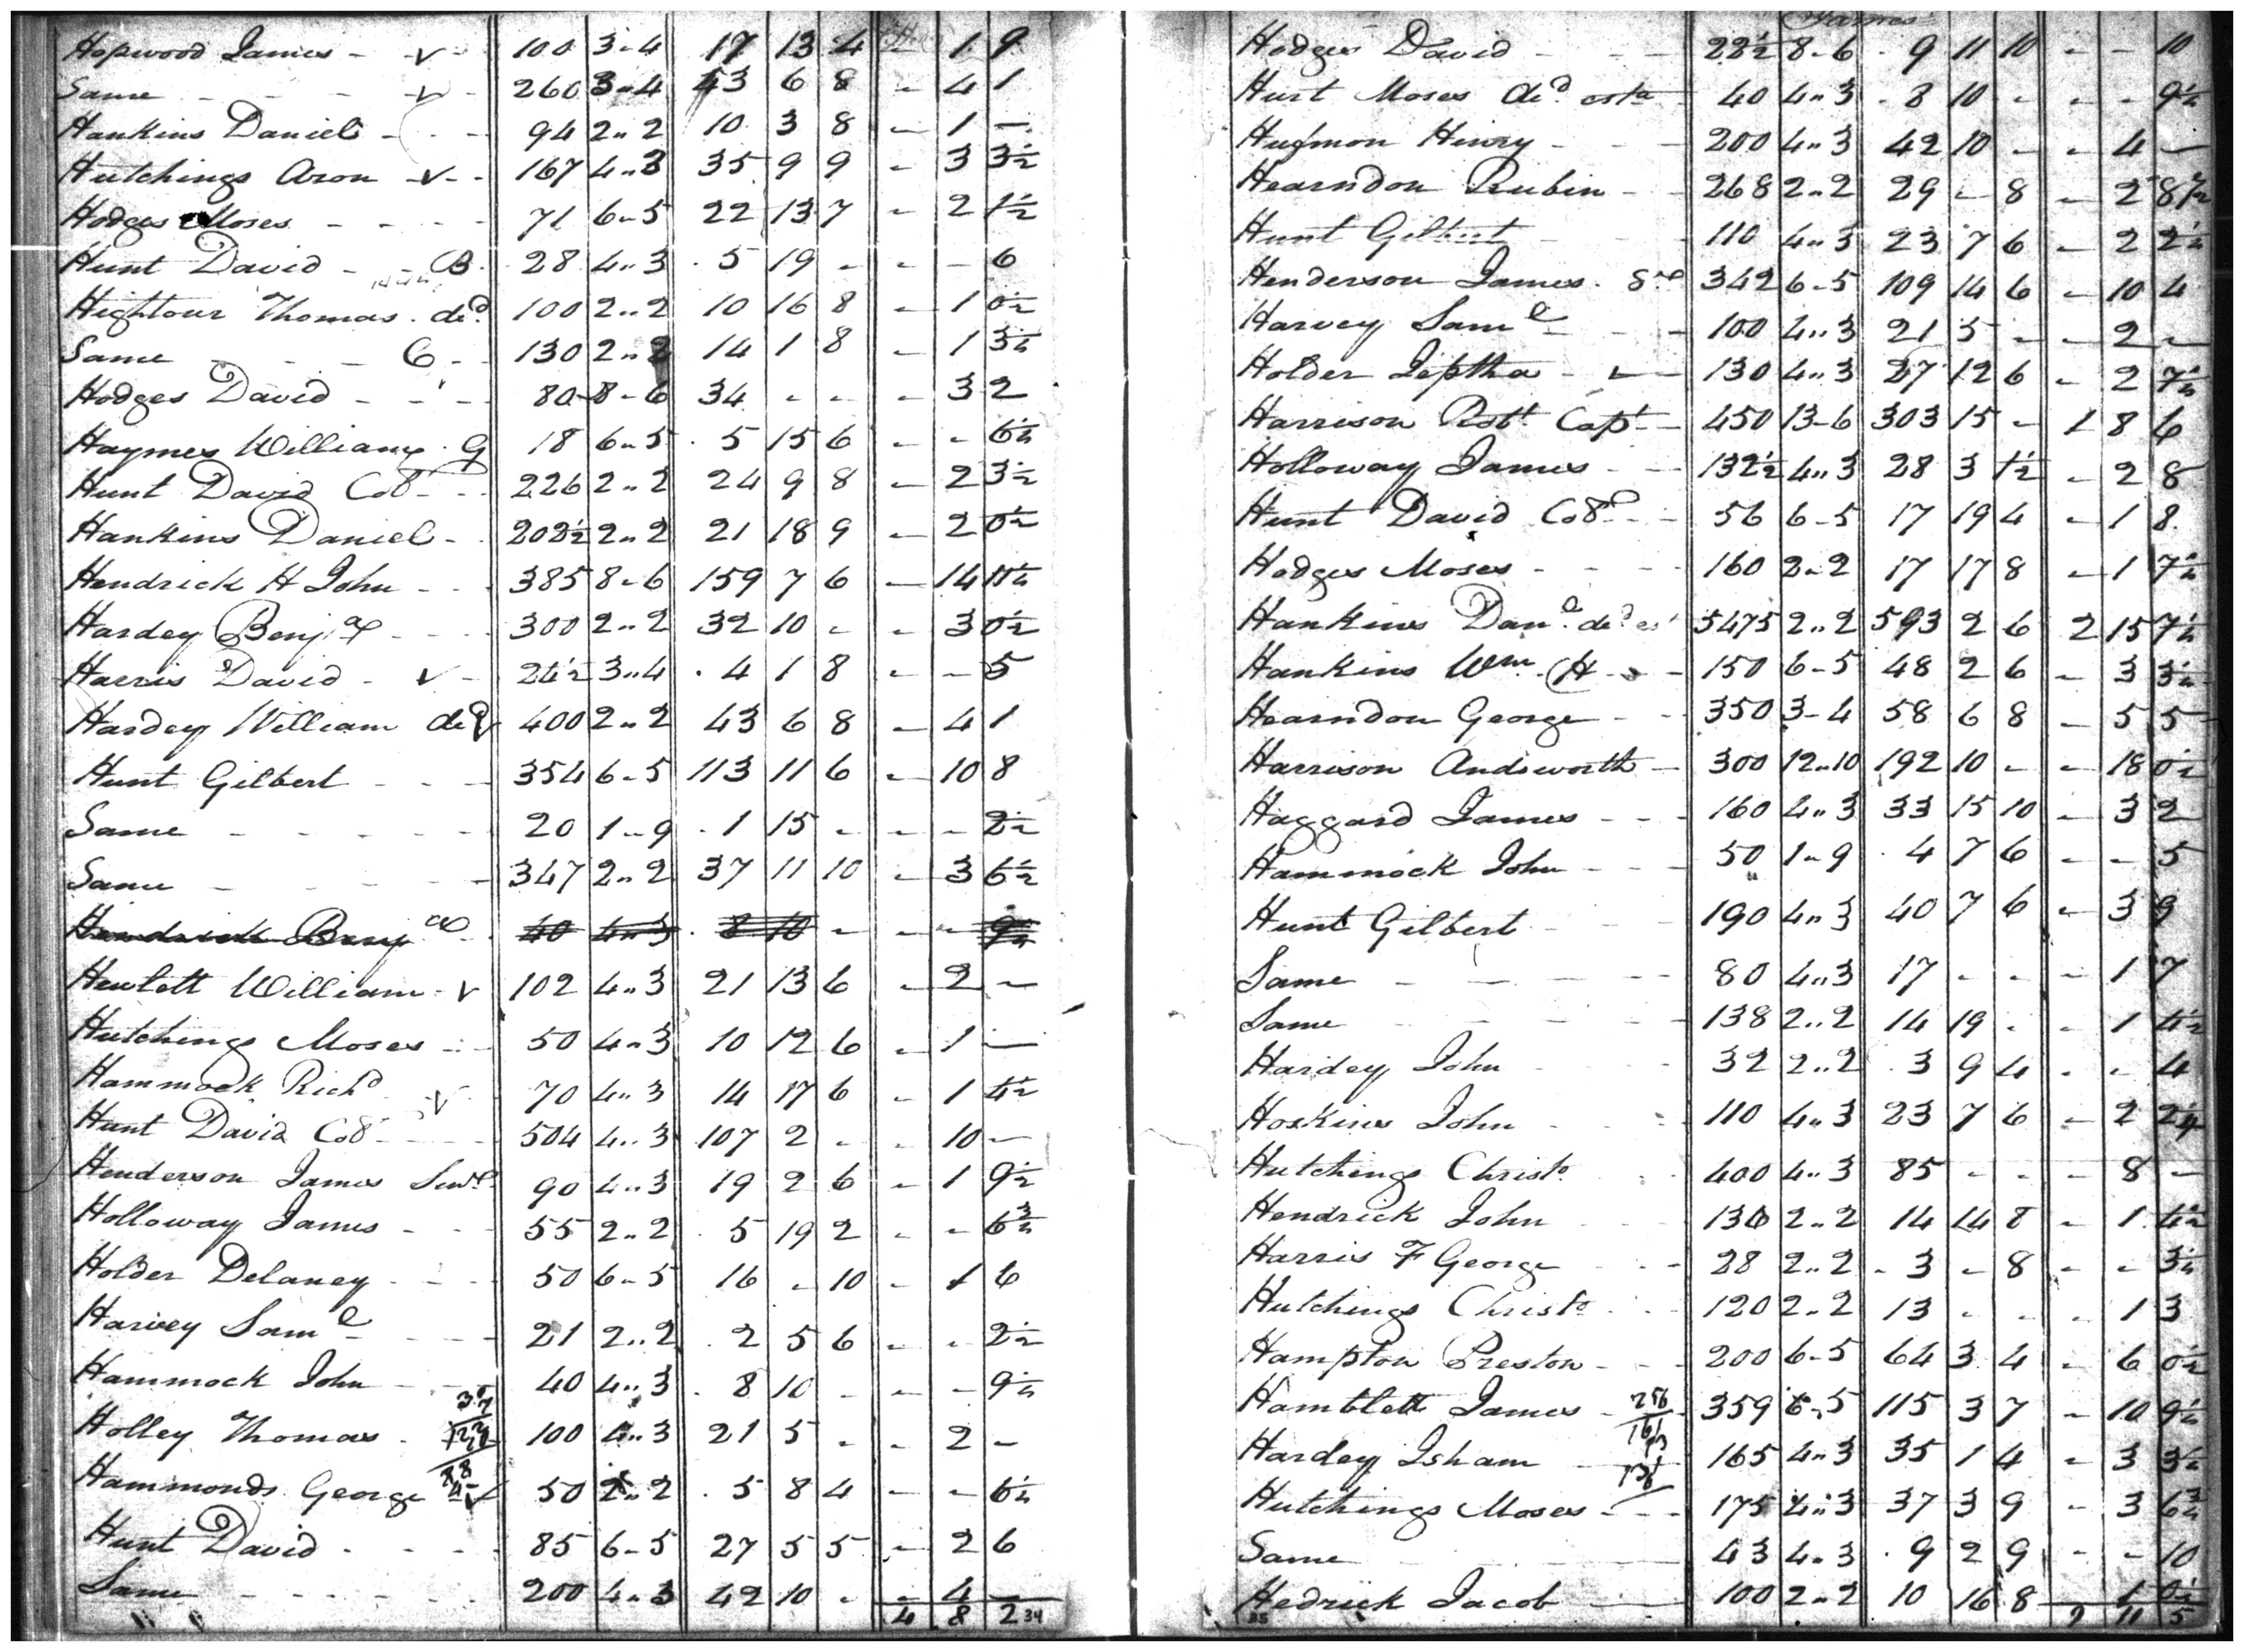 Hopwood James - v - 100 3-4 17 13 4 1 9
Same - - - v - 260 3-4 43 6 8 - 4 1
Hankins Daniel - - - 94 2-2 10 3 8 - 1 -
Hutchings Aron - v - - 167 4-3 35 9 9 - 3 3½
Hodges Moses - - - - 71 6-5 22 13 7 - 2 1½
Hunt David - - B. 28 4-3 5 19 - - - 6
Hightour Thomas. decd. 100 2-2 10 16 8 - 1 0½
Same - - - C - 130 2-2 14 1 8 - 1 3¾
Hodges David - - - 80 8-6 34 - - - 3 2
Haymes William G 18 6-5 5 15 6 - - 6½
Hunt David Col - - 226 2-2 24 9 8 - 2 3½
Hankins Daniel - 202½ 2-2 21 18 9 - 2 0½
Hendrick H John - - 385 8-6 159 7 6 - 14 11¼
Hardey Benja - - - 300 2-2 32 10 - - 3 0½
Harris David - v - 24½ 3-4 4 1 8 - - 5
Hardey William decd 400 2-2 43 6 8 - 4 1
Hunt Gilbert - - - 354 6-5 113 11 6 - 10 8
Same - - - - - 20 1-9 1 15 - - - 2½
Same - - - - - 347 2-2 37 11 10 - 3 6½
Hendrick Benja - 40 4-3 8 10 - - - 9½
Hewlett William - v 102 4-3 21 13 6 - 2 -
Hutchings Moses - - 50 4-3 10 12 6 - 1 -
Hammock Richd v - 70 4-3 14 17 6 - 1 4½
Hunt David Col - - - 504 4-3 107 2 - - 10 -
Henderson James Senr 90 4-3 19 2 6 - 1 9½
Holloway James - - - 55 2-2 5 19 2 - - 6¾
Holder Delaney - - - 50 6-5 16 - 10 - 1 6
Harvey Saml - - - 21 2-2 2 5 6 - - 2½
Hammock John - - 40 4-3 8 10 - - - 9½
Holley Thomas - 100 4-3 21 5 - - 2 -
Hammonds George v 50 2-2 5 8 4 - - 6¼
Hunt David - - - - 85 6-5 27 5 5 - 2 6
Same - - - - - - 200 4-3 42 10 - - 4 -
4 8 2 34
James
Hodges David - - - 22½ 8-6 9 11 10 - - 10
Hurt Moses decd esta 40 4-3 8 10 - - - 9½
Hufmon Henry - - - 200 4-3 42 10 - - 4 -
Hearndon Rubin - - 268 2-2 29 - 8 - 2 8½
Hunt Gilbert - - 110 4-3 23 7 6 - 2 2½
Henderson James. Sr 342 6-5 109 14 6 - 10 4
Harvey Saml - - - 100 4-3 21 5 - - 2 -
Holder Jeptha - v - 130 4-3 27 12 6 - 2 7¼
Harrison Robt Capt - 450 13-6 303 15 - 1 8 6
Holloway James - - 132½ 4-3 28 3 1½ - 2 8
Hunt David Col - - 56 6-5 17 19 4 - 1 8
Hodges Moses - - - - 160 2-2 17 17 8 - 1 7½
Hankins Danl decd est 5475 2-2 593 2 6 2 15 7½
Hankins Wm. H - - - 150 6-5 48 2 6 - 3 3½
Hearndon George - - 350 3-4 58 6 8 - 5 5
Harrison Andsworth - 300 12-10 192 10 - - 18 0½
Haggard James - - - 160 4-3 33 15 10 - 3 2
Hammock John - - - 50 1-9 4 7 6 - - 5
Hunt Gilbert - - 190 4-3 40 7 6 - 3 9
Same - - - - - 80 4-3 17 - - - 1 7
Same - - - - - 138 2-2 14 19 - - 1 4½
Hardey John - 32 2-2 3 9 4 - - 4
Hoskins John - - 110 4-3 23 7 6 - 2 2¼
Hutchings Christo. - - 400 4-3 85 - - - 8 -
Hendrick John - - 136 2-2 14 14 8 - 1 4½
Harris F George - - - 28 2-2 3 - 8 - - 3½
Hutchings Christo - - 120 2-2 13 - - - 1 3
Hampton Preston - - - 200 6-5 64 3 4 - 6 0½
Hamblett James - 359 6-5 115 3 7 - 10 9½
Hardey Isham - 165 4-3 35 1 4 - 3 3½
Hutchings Moses - - - 175 4-3 37 3 9 - 3 6¾
Same - - - 43 4-3 9 2 9 - - 10
Hedrick Jacob - 100 2-2 10 16 8 1 0½
35 9 11 5